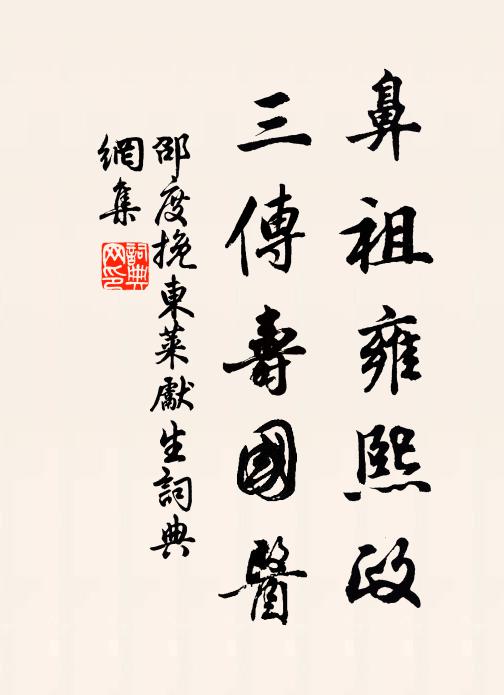 鼻祖雍熙政
三傳壽國醫
邵度挽東萊獻生詞典
網集
詞典网印